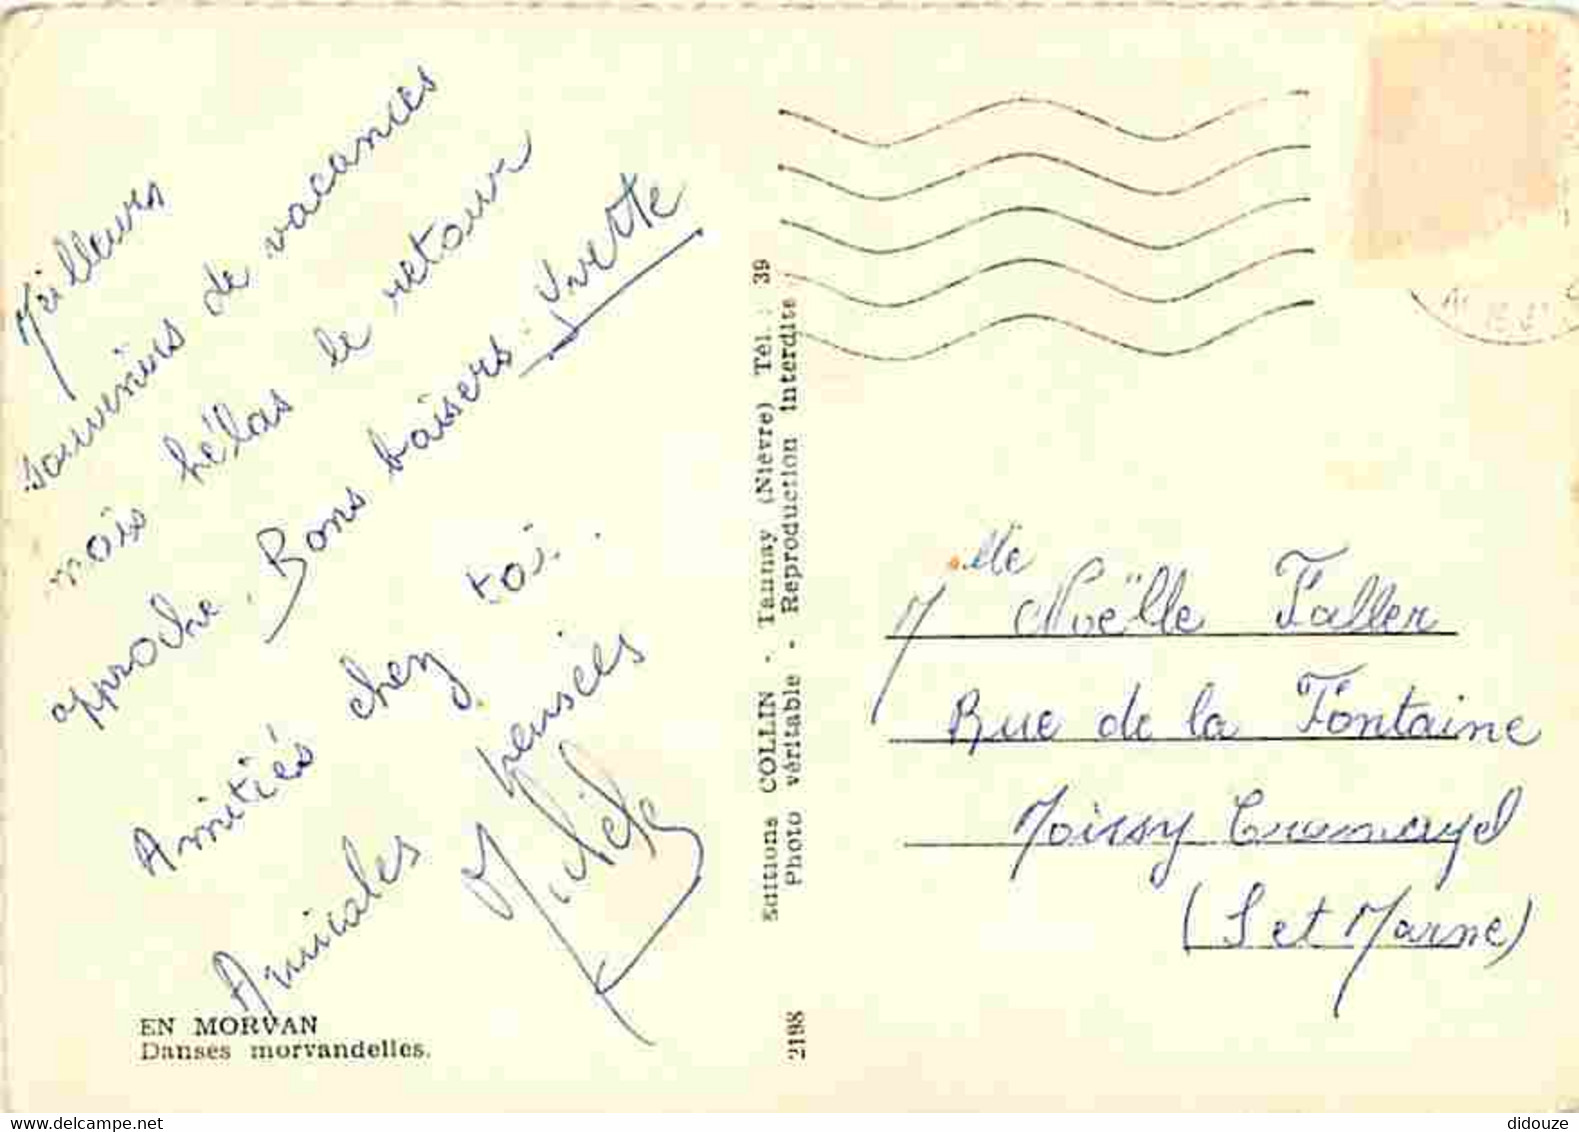 Meilleurs
souvenirs de vacances
mais hélas le retour
approche. Bons baisers. Yvette
Amitiés chez toi.
Amicales pensées
Michèle
EN MORVAN
Danses morvandelles.
Editions COLLIN - Tannay (Nièvre) Tél. : 39
Photo véritable - Reproduction interdite
2198
Mlle Noëlle Faller
Rue de la Fontaine
Moissy Cramayel
(S et Marne)
delcampe.net
didouze